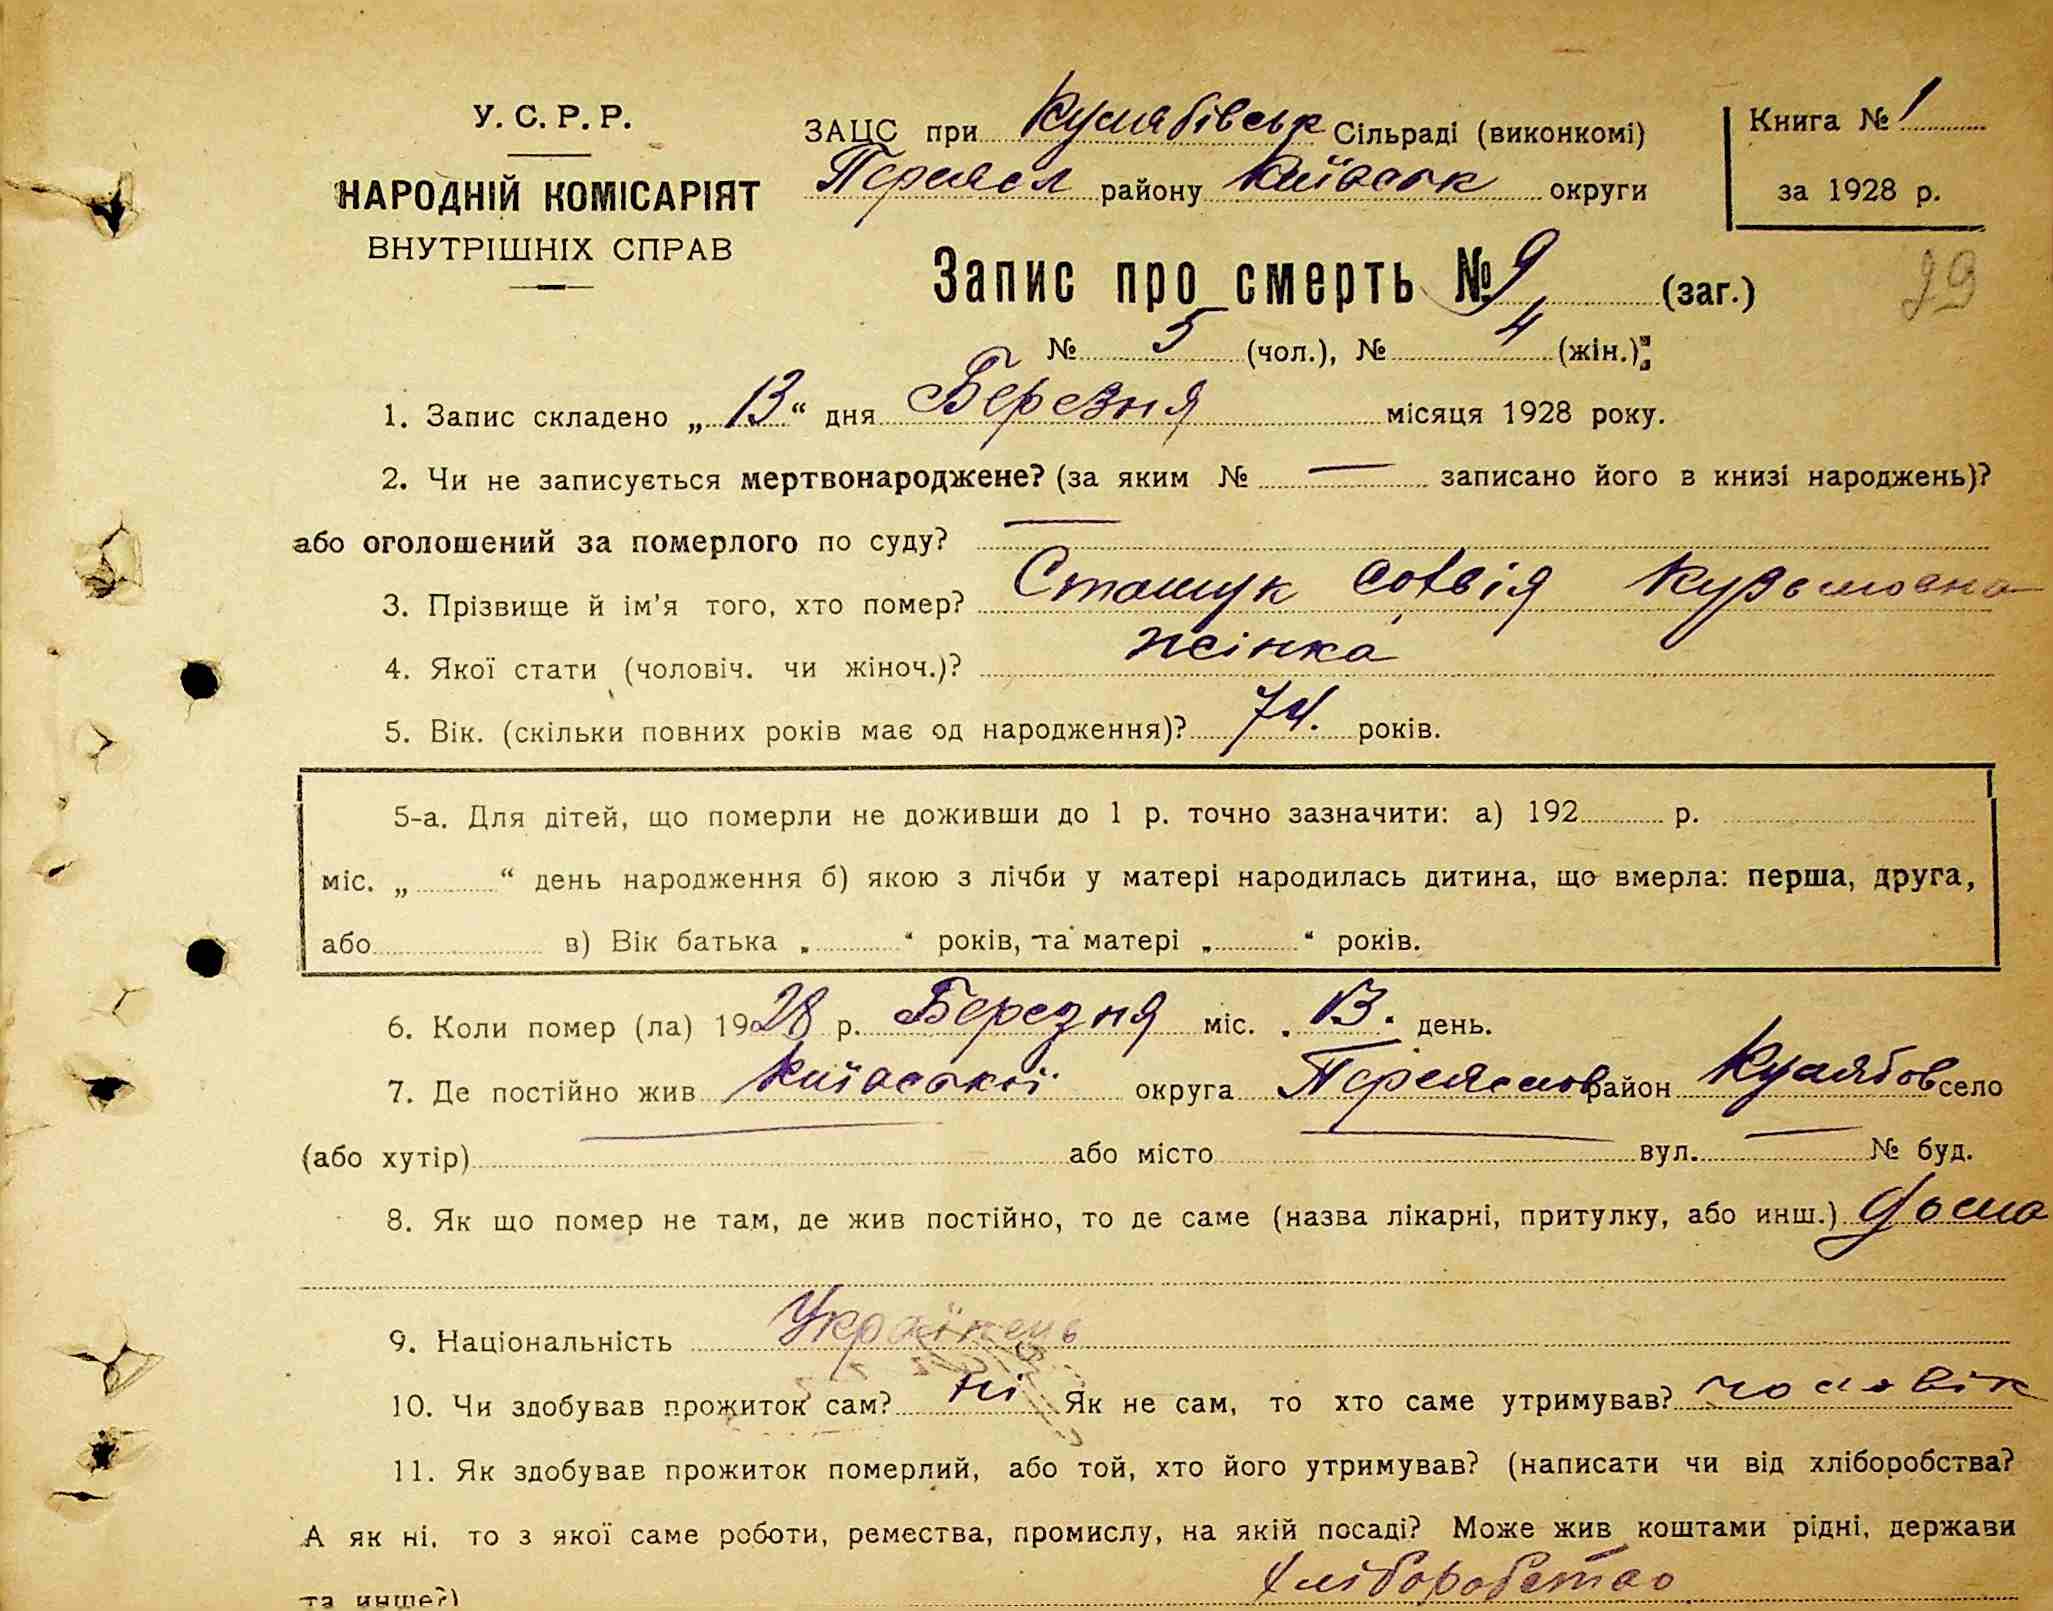 У. С. Р. Р.
НАРОДНІЙ КОМІСАРІЯТ
ВНУТРІШНІХ СПРАВ
ЗАЦС при Кулябівськ Сільраді (виконкомі)
Переясл району Київськ округи
Книга № 1
за 1928 р.
29
Запис про смерть № 9 (заг.)
№ 5 (чол.), № 4 (жін.);
1. Запис складено „13“ дня Березня місяця 1928 року.
2. Чи не записується мертвонароджене? (за яким № — записано його в книзі народжень)?
або оголошений за померлого по суду? —
3. Прізвище й ім'я того, хто помер? Сташук Софія Кузьмовна
4. Якої стати (чоловіч. чи жіноч.)? жінка
5. Вік. (скільки повних років має од народження)? 74. років.
5-а. Для дітей, що померли не доживши до 1 р. точно зазначити: а) 192 р.
міс. „ “ день народження б) якою з лічби у матері народилась дитина, що вмерла: перша, друга,
або в) Вік батька „ “ років, та матері „ “ років.
6. Коли помер (ла) 1928 р. Березня міс. 13. день.
7. Де постійно жив Київської округа Переяслов район Кулябов село
(або хутір) — або місто — вул. — № буд.
8. Як що помер не там, де жив постійно, то де саме (назва лікарні, притулку, або инш.) Дома
9. Національність Українець
10. Чи здобував прожиток сам? ні Як не сам, то хто саме утримував? чоловік
11. Як здобував прожиток померлий, або той, хто його утримував? (написати чи від хліборобства?
А як ні, то з якої саме роботи, ремества, промислу, на якій посаді? Може жив коштами рідні, держави
та инше?) Хліборобство